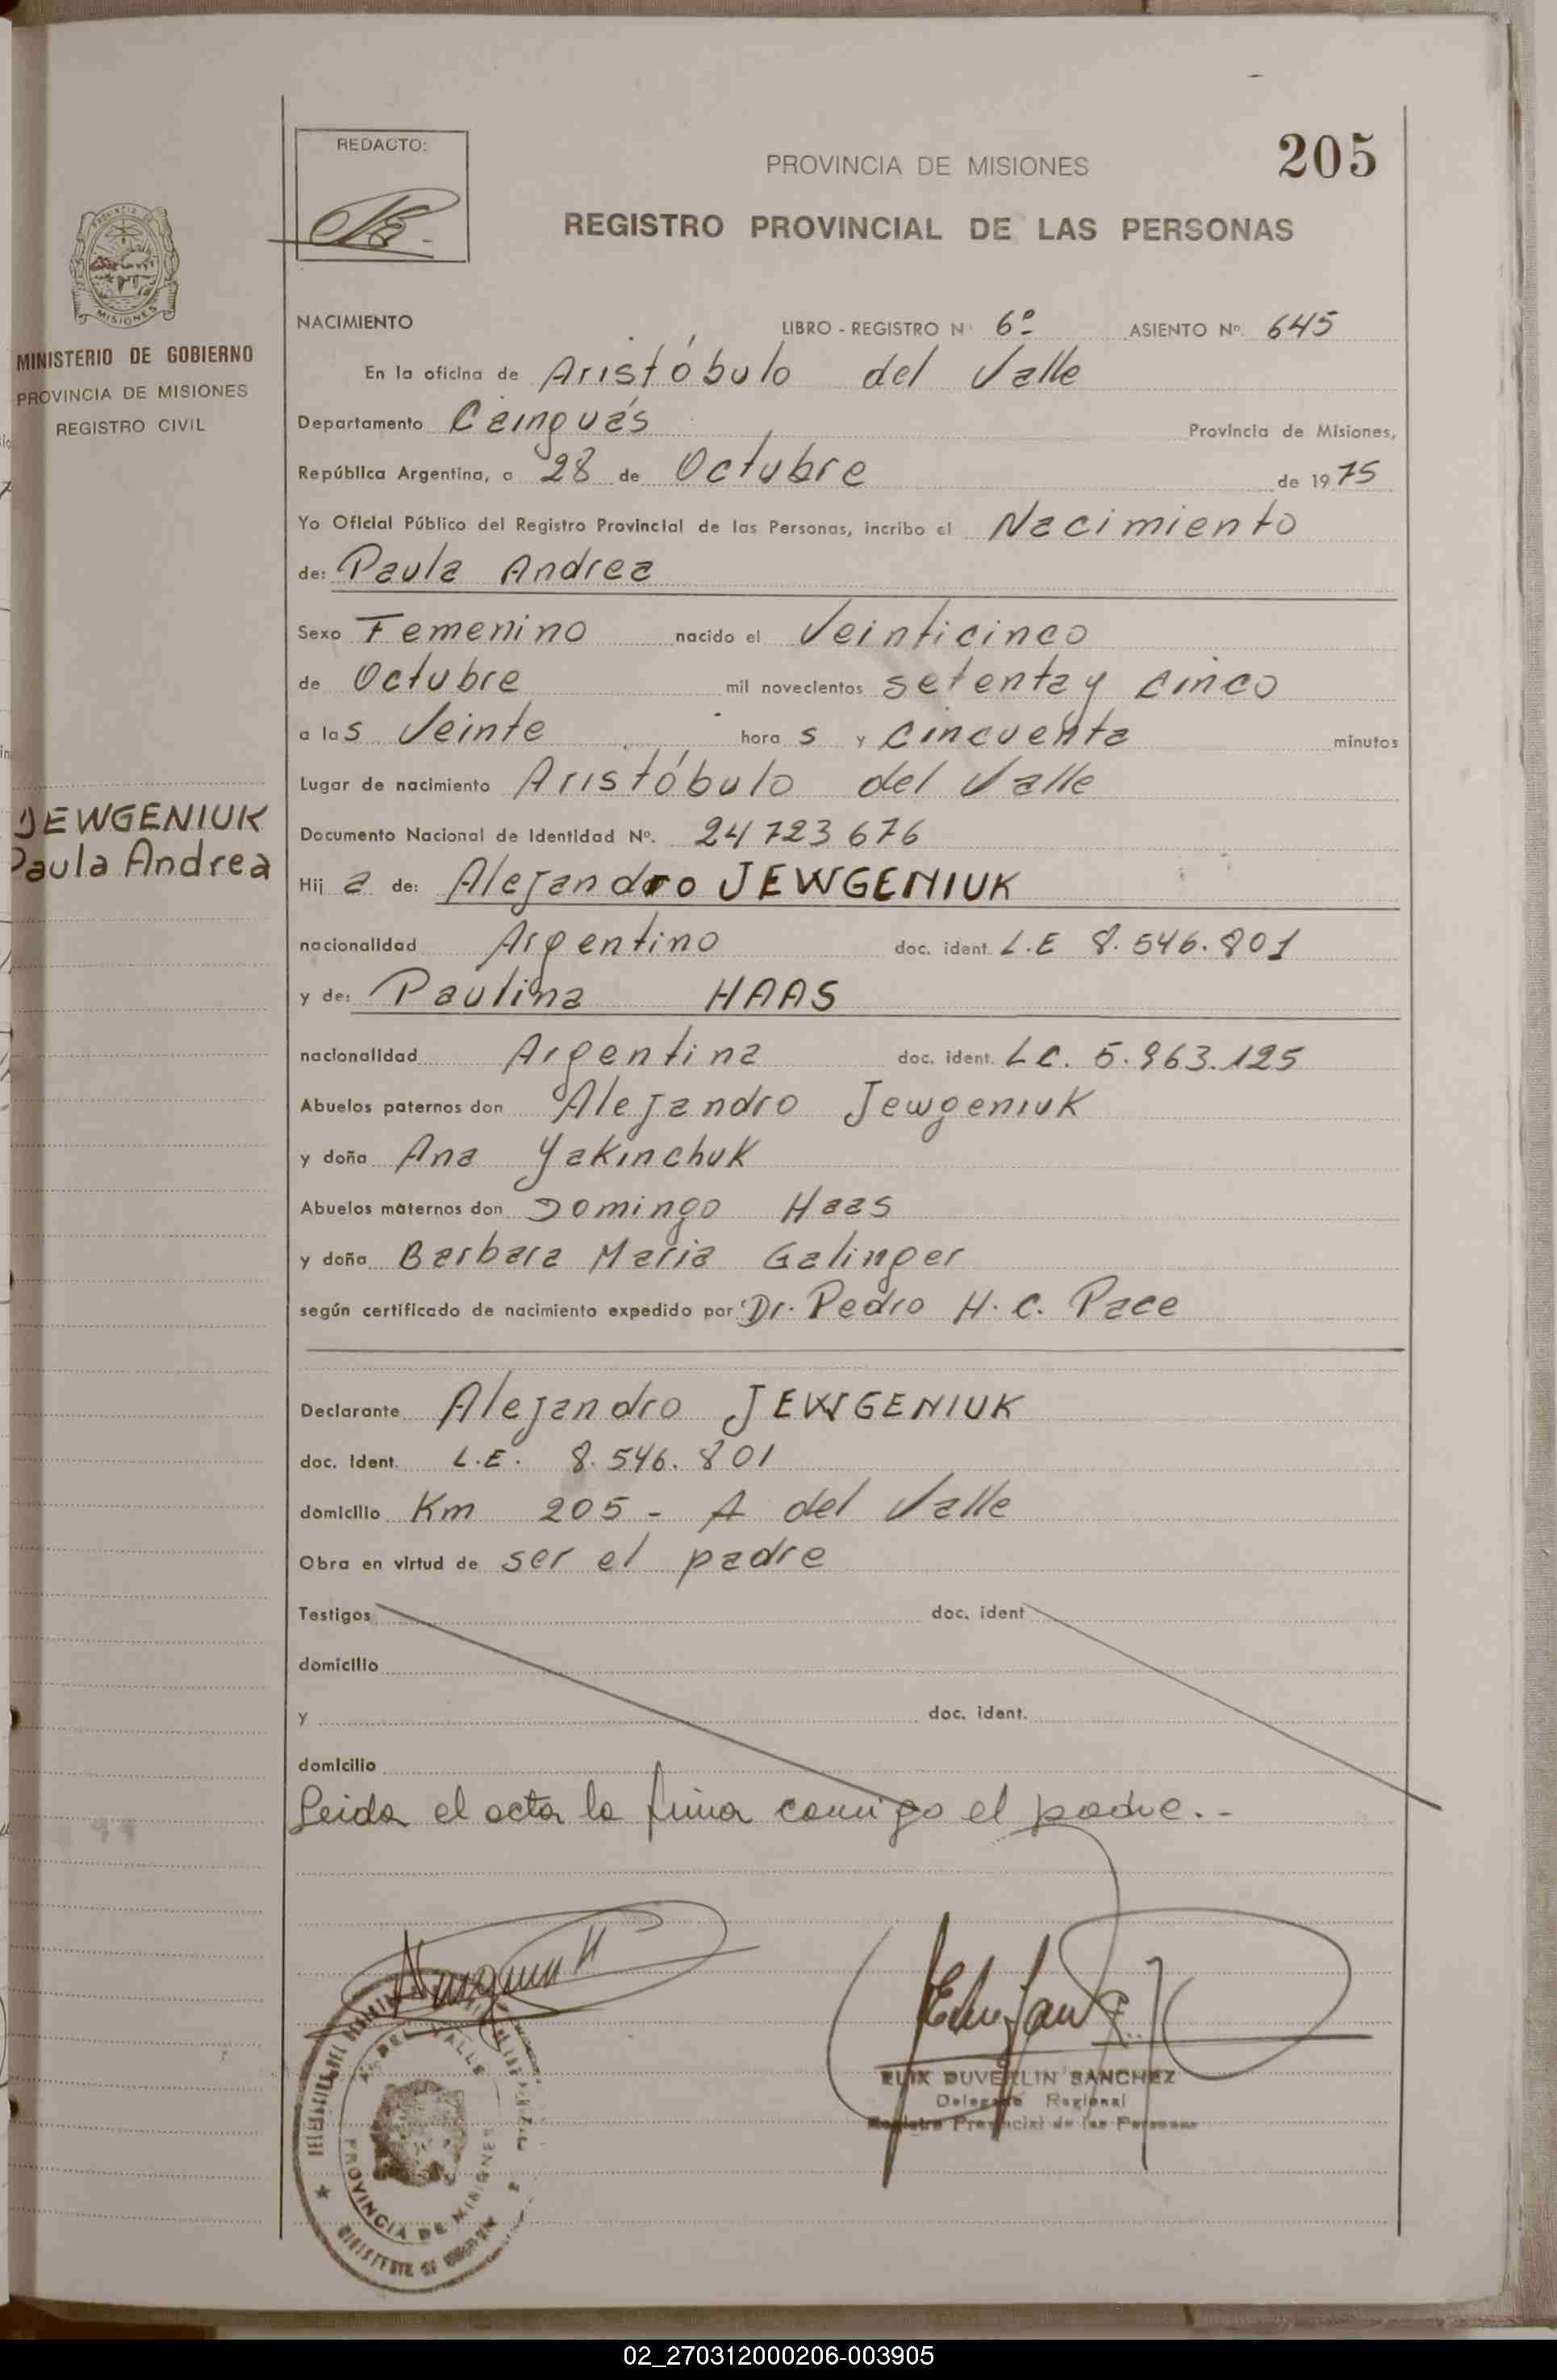 205
REDACTO:
PROVINCIA DE MISIONES
REGISTRO PROVINCIAL DE LAS PERSONAS
MISIONES
MINISTERIO DE GOBIERNO
PROVINCIA DE MISIONES
REGISTRO CIVIL
NACIMIENTO LIBRO - REGISTRO Nº 6º ASIENTO Nº 645
En la oficina de Aristóbulo del Valle
Departamento Cainguás Provincia de Misiones,
República Argentina, a 28 de Octubre de 1975
Yo Oficial Público del Registro Provincial de las Personas, incribo el Nacimiento
de: Paula Andrea
Sexo Femenino nacido el Veinticinco
de Octubre mil novecientos setenta y cinco
a las Veinte horas y cincuenta minutos
Lugar de nacimiento Aristóbulo del Valle
JEWGENIUK
Paula Andrea
Documento Nacional de Identidad Nº. 24723676
Hija de: Alejandro JEWGENIUK
nacionalidad Argentino doc. ident. L.E 8.546.801
y de: Paulina HAAS
nacionalidad Argentina doc. ident. LC. 5.963.125
Abuelos paternos don Alejandro Jewgeniuk
y doña Ana Yakinchuk
Abuelos maternos don Domingo Haas
y doña Barbara Maria Galinger
según certificado de nacimiento expedido por: Dr. Pedro H. C. Pace
Declarante Alejandro JEWGENIUK
doc. Ident. L.E. 8.546.801
domicilio Km 205 - A del Valle
Obra en virtud de ser el padre
Testigos doc. ident
domicilio
y doc. ident.
domicilio
Leida el acta la firma conmigo el padre.-
ELIX DUVERLIN SANCHEZ
Delegado Regional
Registro Provincial de las Personas
A. DEL VALLE
PROVINCIA DE MISIONES
02_270312000206-003905